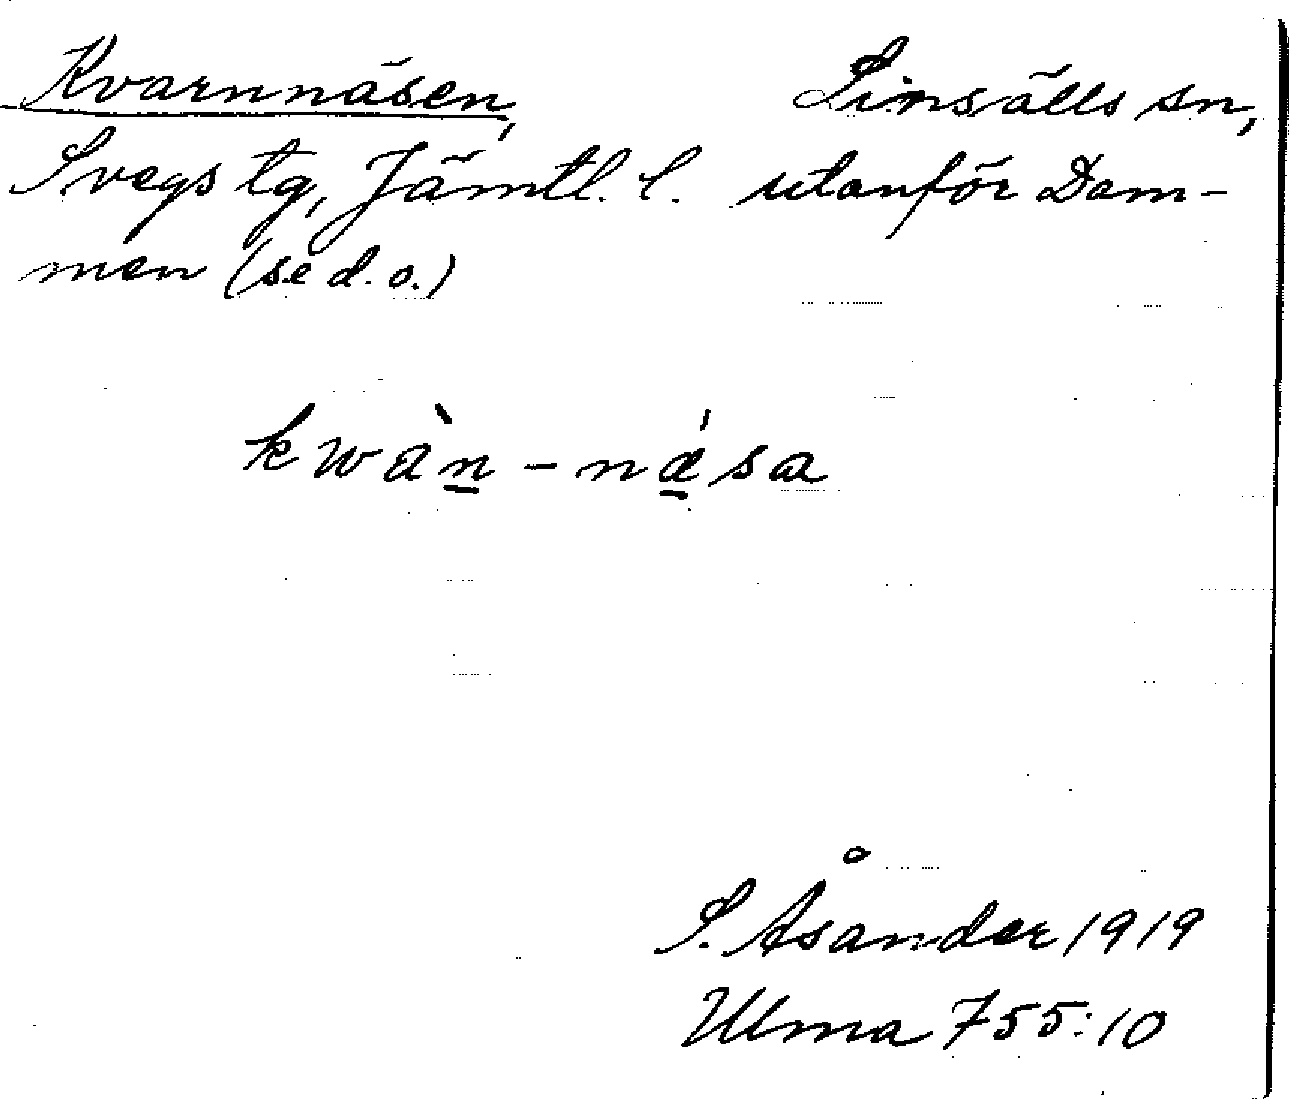 Kvarnnäsen, Linsälls sn,
Svegs tg, Jämtl. l. utanför Dam-
men (se d. o.)
kwàn-nása
S. Åsander 1919
Ulma 755:10